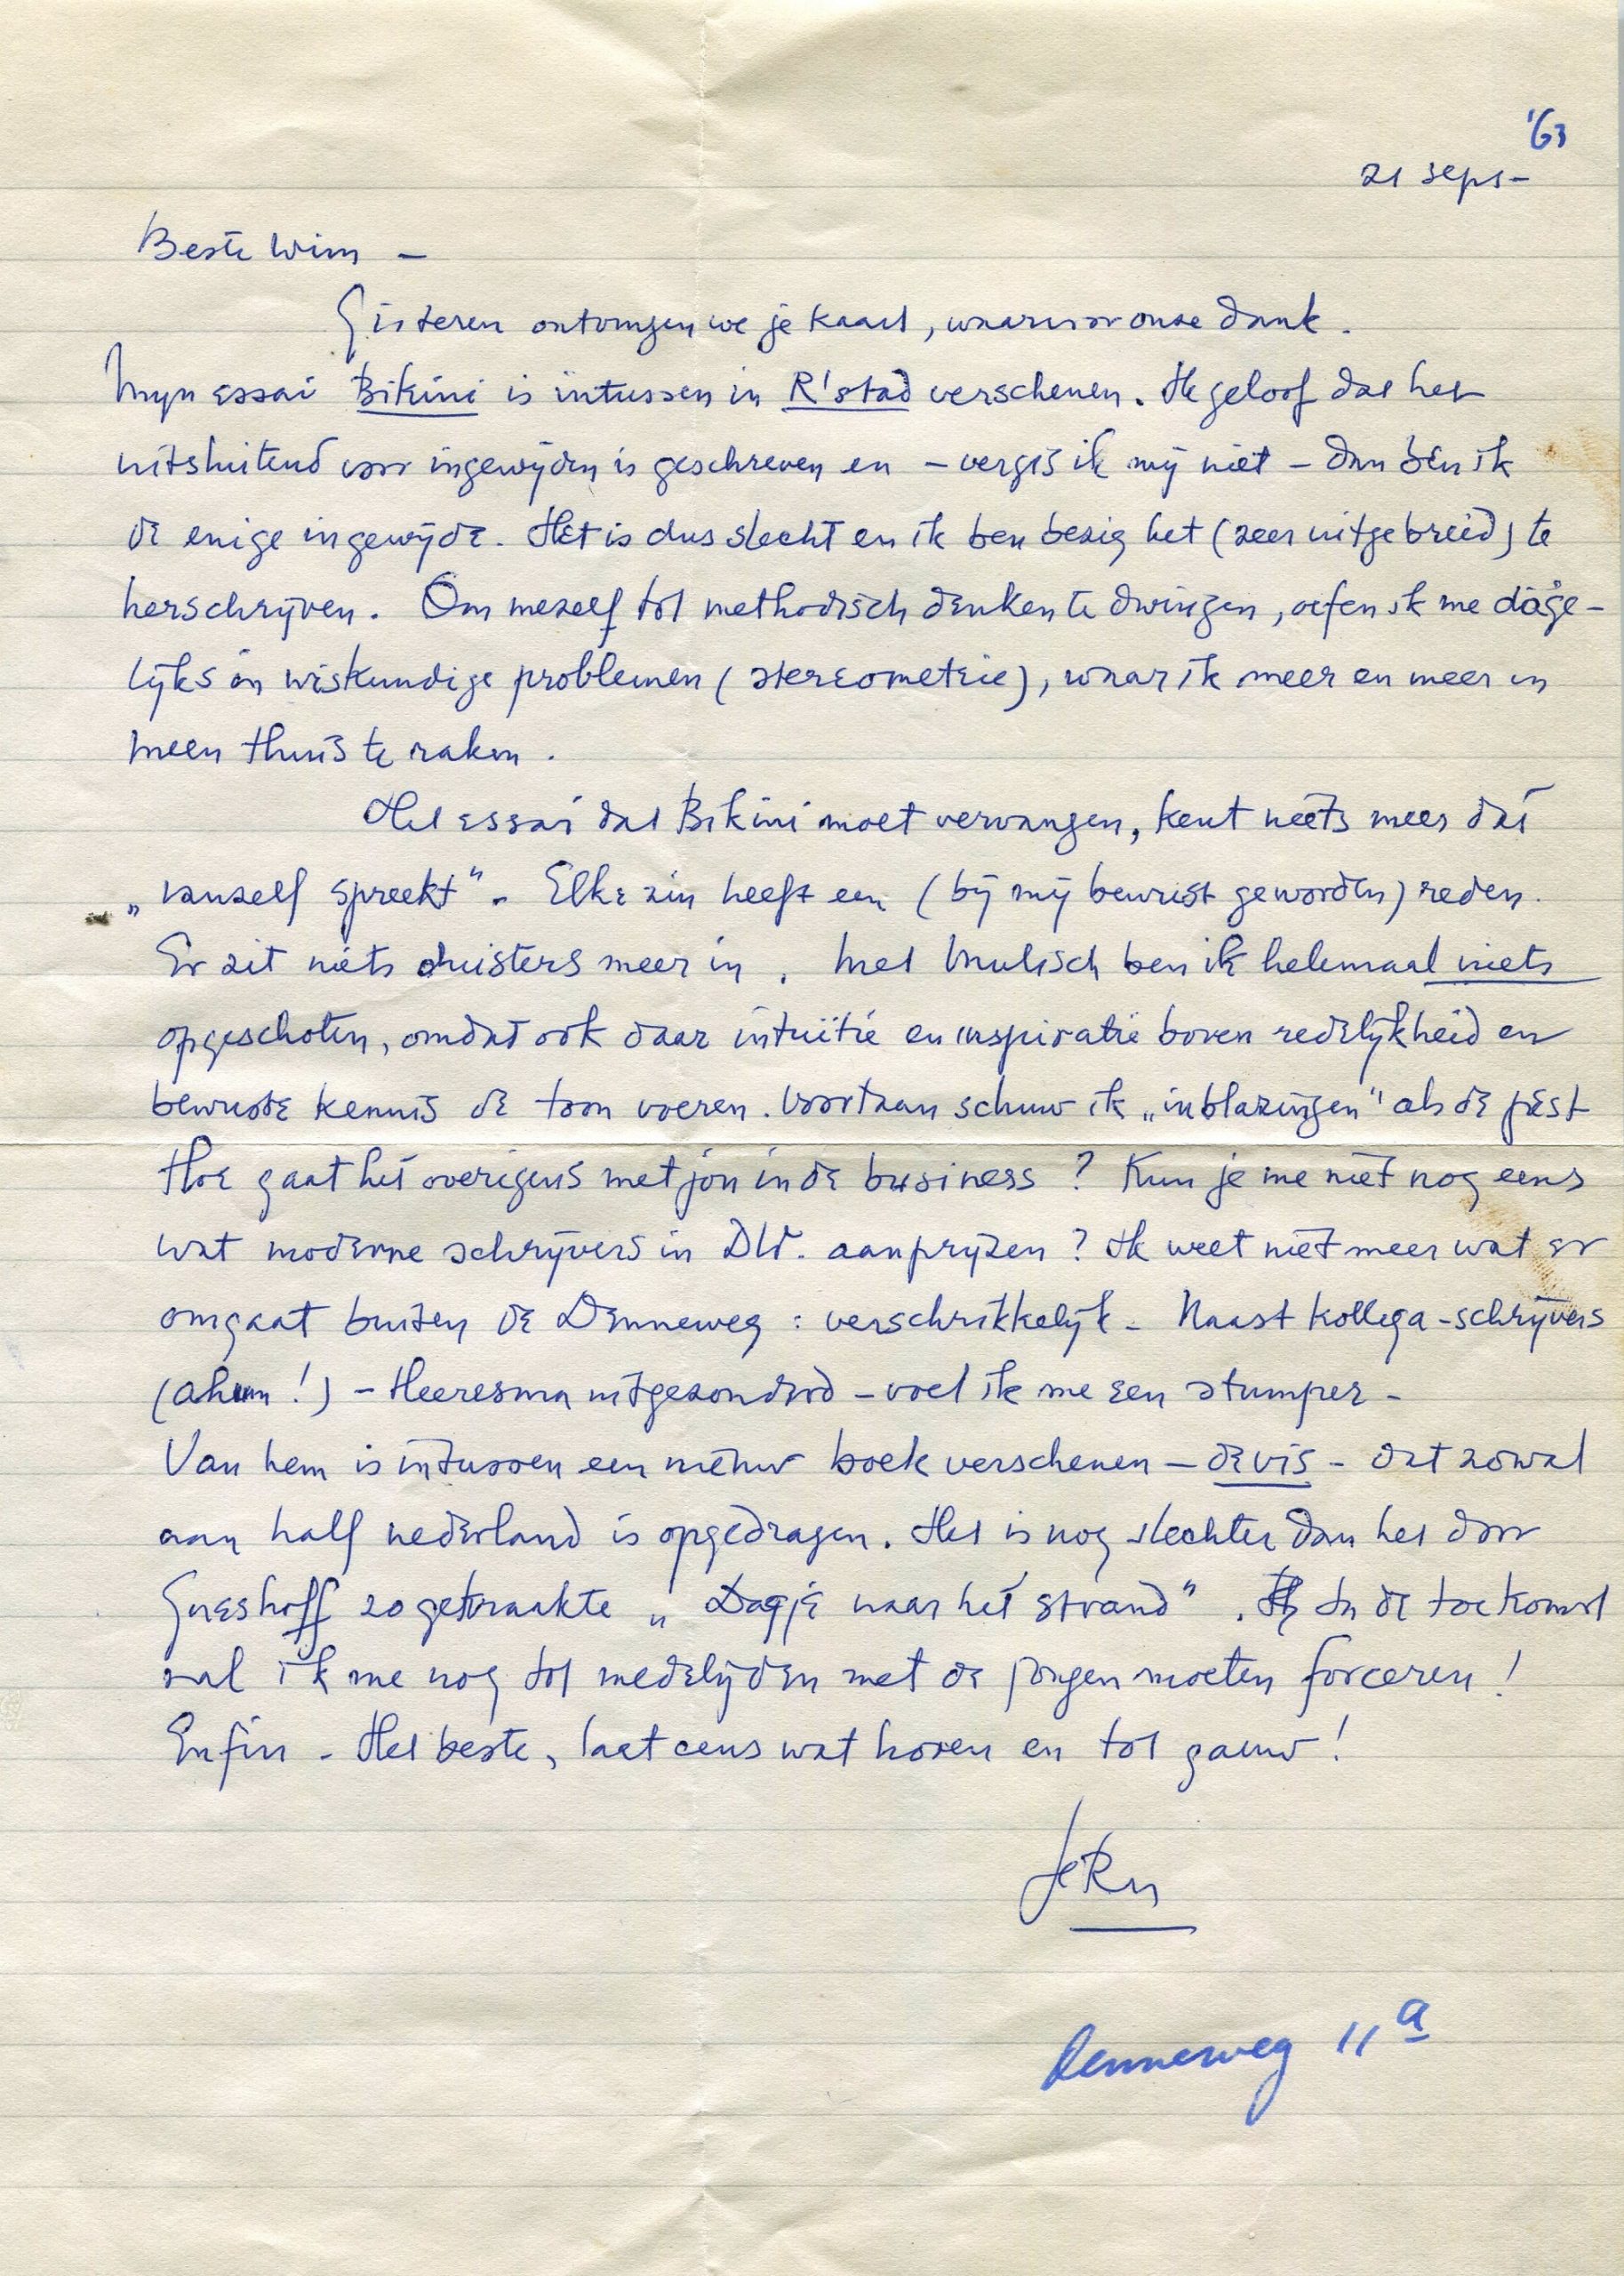 '63
21 sept –
Beste Wim –
Gisteren ontvingen we je kaart, waarvoor onze dank.
Mijn essai Bikini is intussen in R'stad verschenen. Ik geloof dat het
uitsluitend voor ingewijden is geschreven en – vergis ik mij niet – dan ben ik
de enige ingewijde. Het is dus slecht en ik ben bezig het (zeer uitgebreid) te
herschrijven. Om mezelf tot methodisch denken te dwingen, oefen ik me dage-
lijks in wiskundige problemen (stereometrie), waar ik meer en meer in
meen thuis te raken.
Het essai dat Bikini moet vervangen, kent niets meer dat
„vanzelf spreekt". Elke zin heeft een (bij mij bewust geworden) reden.
Er zit niets duisters meer in. Met Mulisch ben ik helemaal niets
opgeschoten, omdat ook daar intuïtie en inspiratie boven redelijkheid en
bewuste kennis de toon voeren. Voortaan schuw ik „inblazingen" als de pest
Hoe gaat het overigens met jou in de business? Kun je me niet nog eens
wat moderne schrijvers in Dld. aanprijzen? Ik weet niet meer wat er
omgaat buiten de Denneweg: verschrikkelijk – Naast kollega-schrijvers
(ahum!) – Heeresma uitgezonderd – voel ik me een stumper –
Van hem is intussen een nieuw boek verschenen – de vis – dat zowat
aan half nederland is opgedragen. Het is nog slechter dan het door
Greshoff zo gekraakte „Dagje naar het strand". In de toekomst
zal ik me nog tot medelijden met de jongen moeten forceren!
Enfin – Het beste, laat eens wat horen en tot gauw!
Denneweg 11a